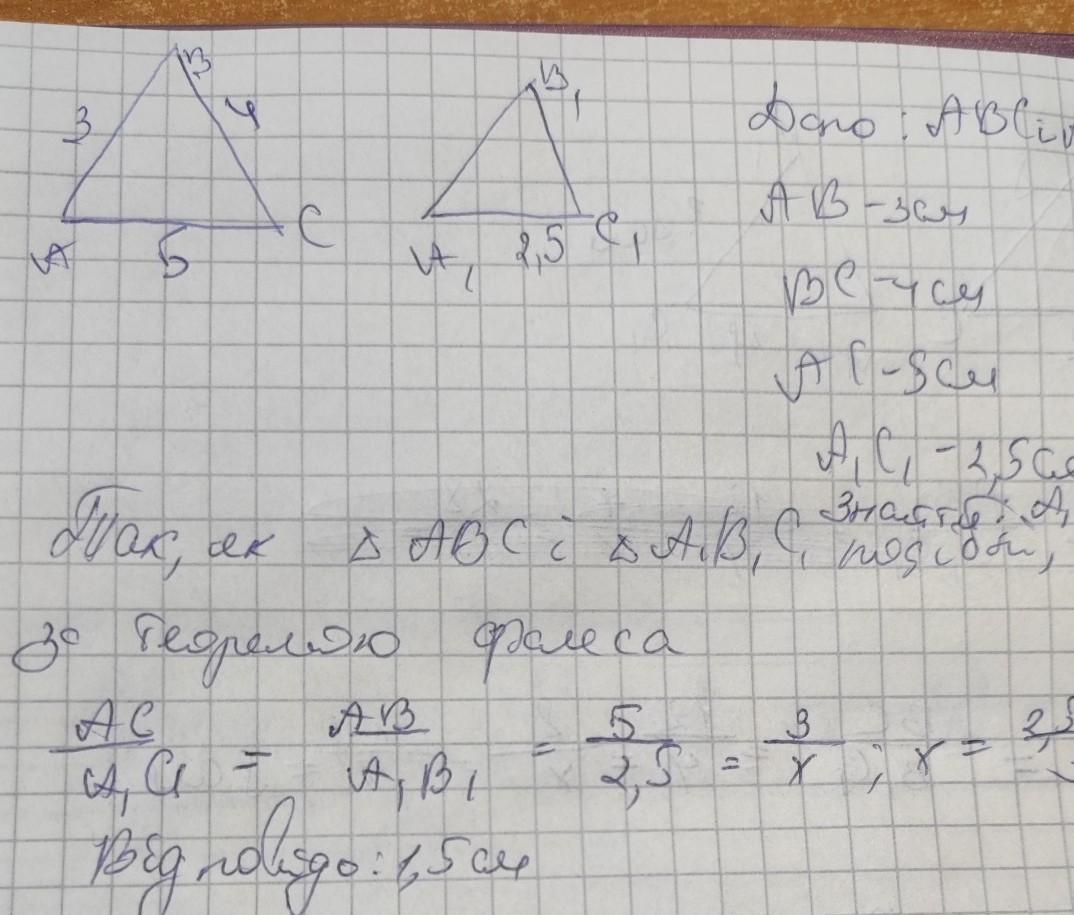 B
3
4
A
5
C
B₁
A₁
2,5
C₁
Дано: ABC і
AB - 3см
BC - 4см
AC - 5см
A₁C₁ - 2,5см
Знайти: A₁
Так, як △ ABC і △ A₁B₁C₁ подібні,
За теоремою Фалеса
AC/A₁C₁ = AB/A₁B₁ = 5/2,5 = 3/x; x =
Відповідь: 1,5см